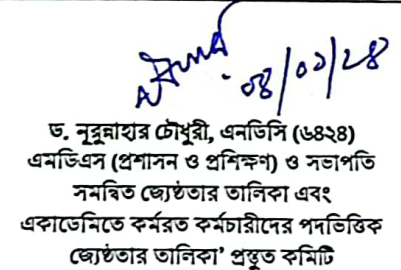 ০৪/০১/২৪
ড. নূরুন্নাহার চৌধুরী, এনডিসি (৬৪২৪)
এমডিএস (প্রশাসন ও প্রশিক্ষণ) ও সভাপতি
সমন্বিত জ্যেষ্ঠতার তালিকা এবং
একাডেমিতে কর্মরত কর্মচারীদের পদভিত্তিক
জ্যেষ্ঠতার তালিকা' প্রস্তুত কমিটি